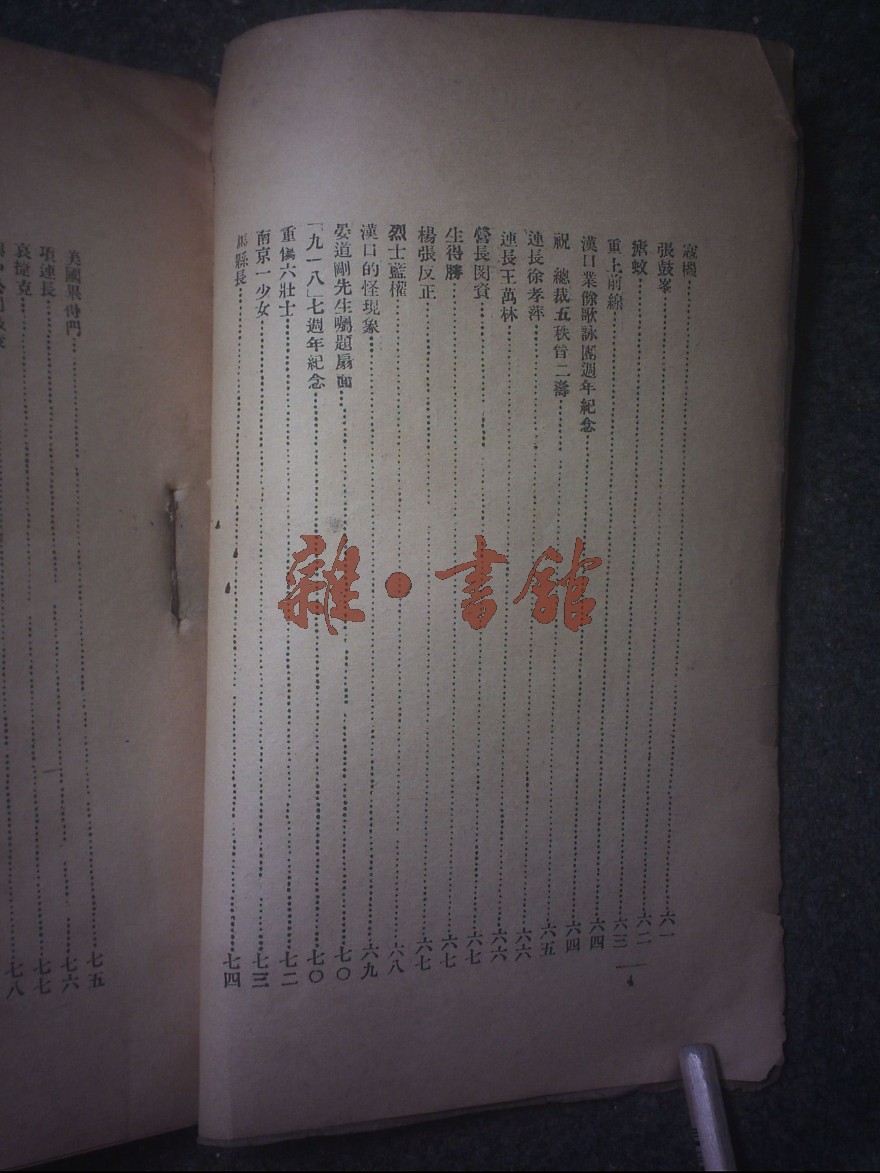 寇機 六一
張鼓峯 六二
蚊 六三
重上前線 六四
漢口業餘歌詠團週年紀念 六四
祝 總裁五秩晉二壽 六五
連長徐孝萍 六六
連長王萬林 六六
營長閔資 六七
生得勝 六七
楊張反正 六七
烈士藍權 六八
漢口的怪現象 六九
晏道剛先生囑題扇面 七〇
「九一八」七週年紀念 七〇
重傷六壯士 七二
南京一少女 七三
縣長 七四
美國畢得門 七五
項連長 七六
哀捷克 七七
七八
雜·書館